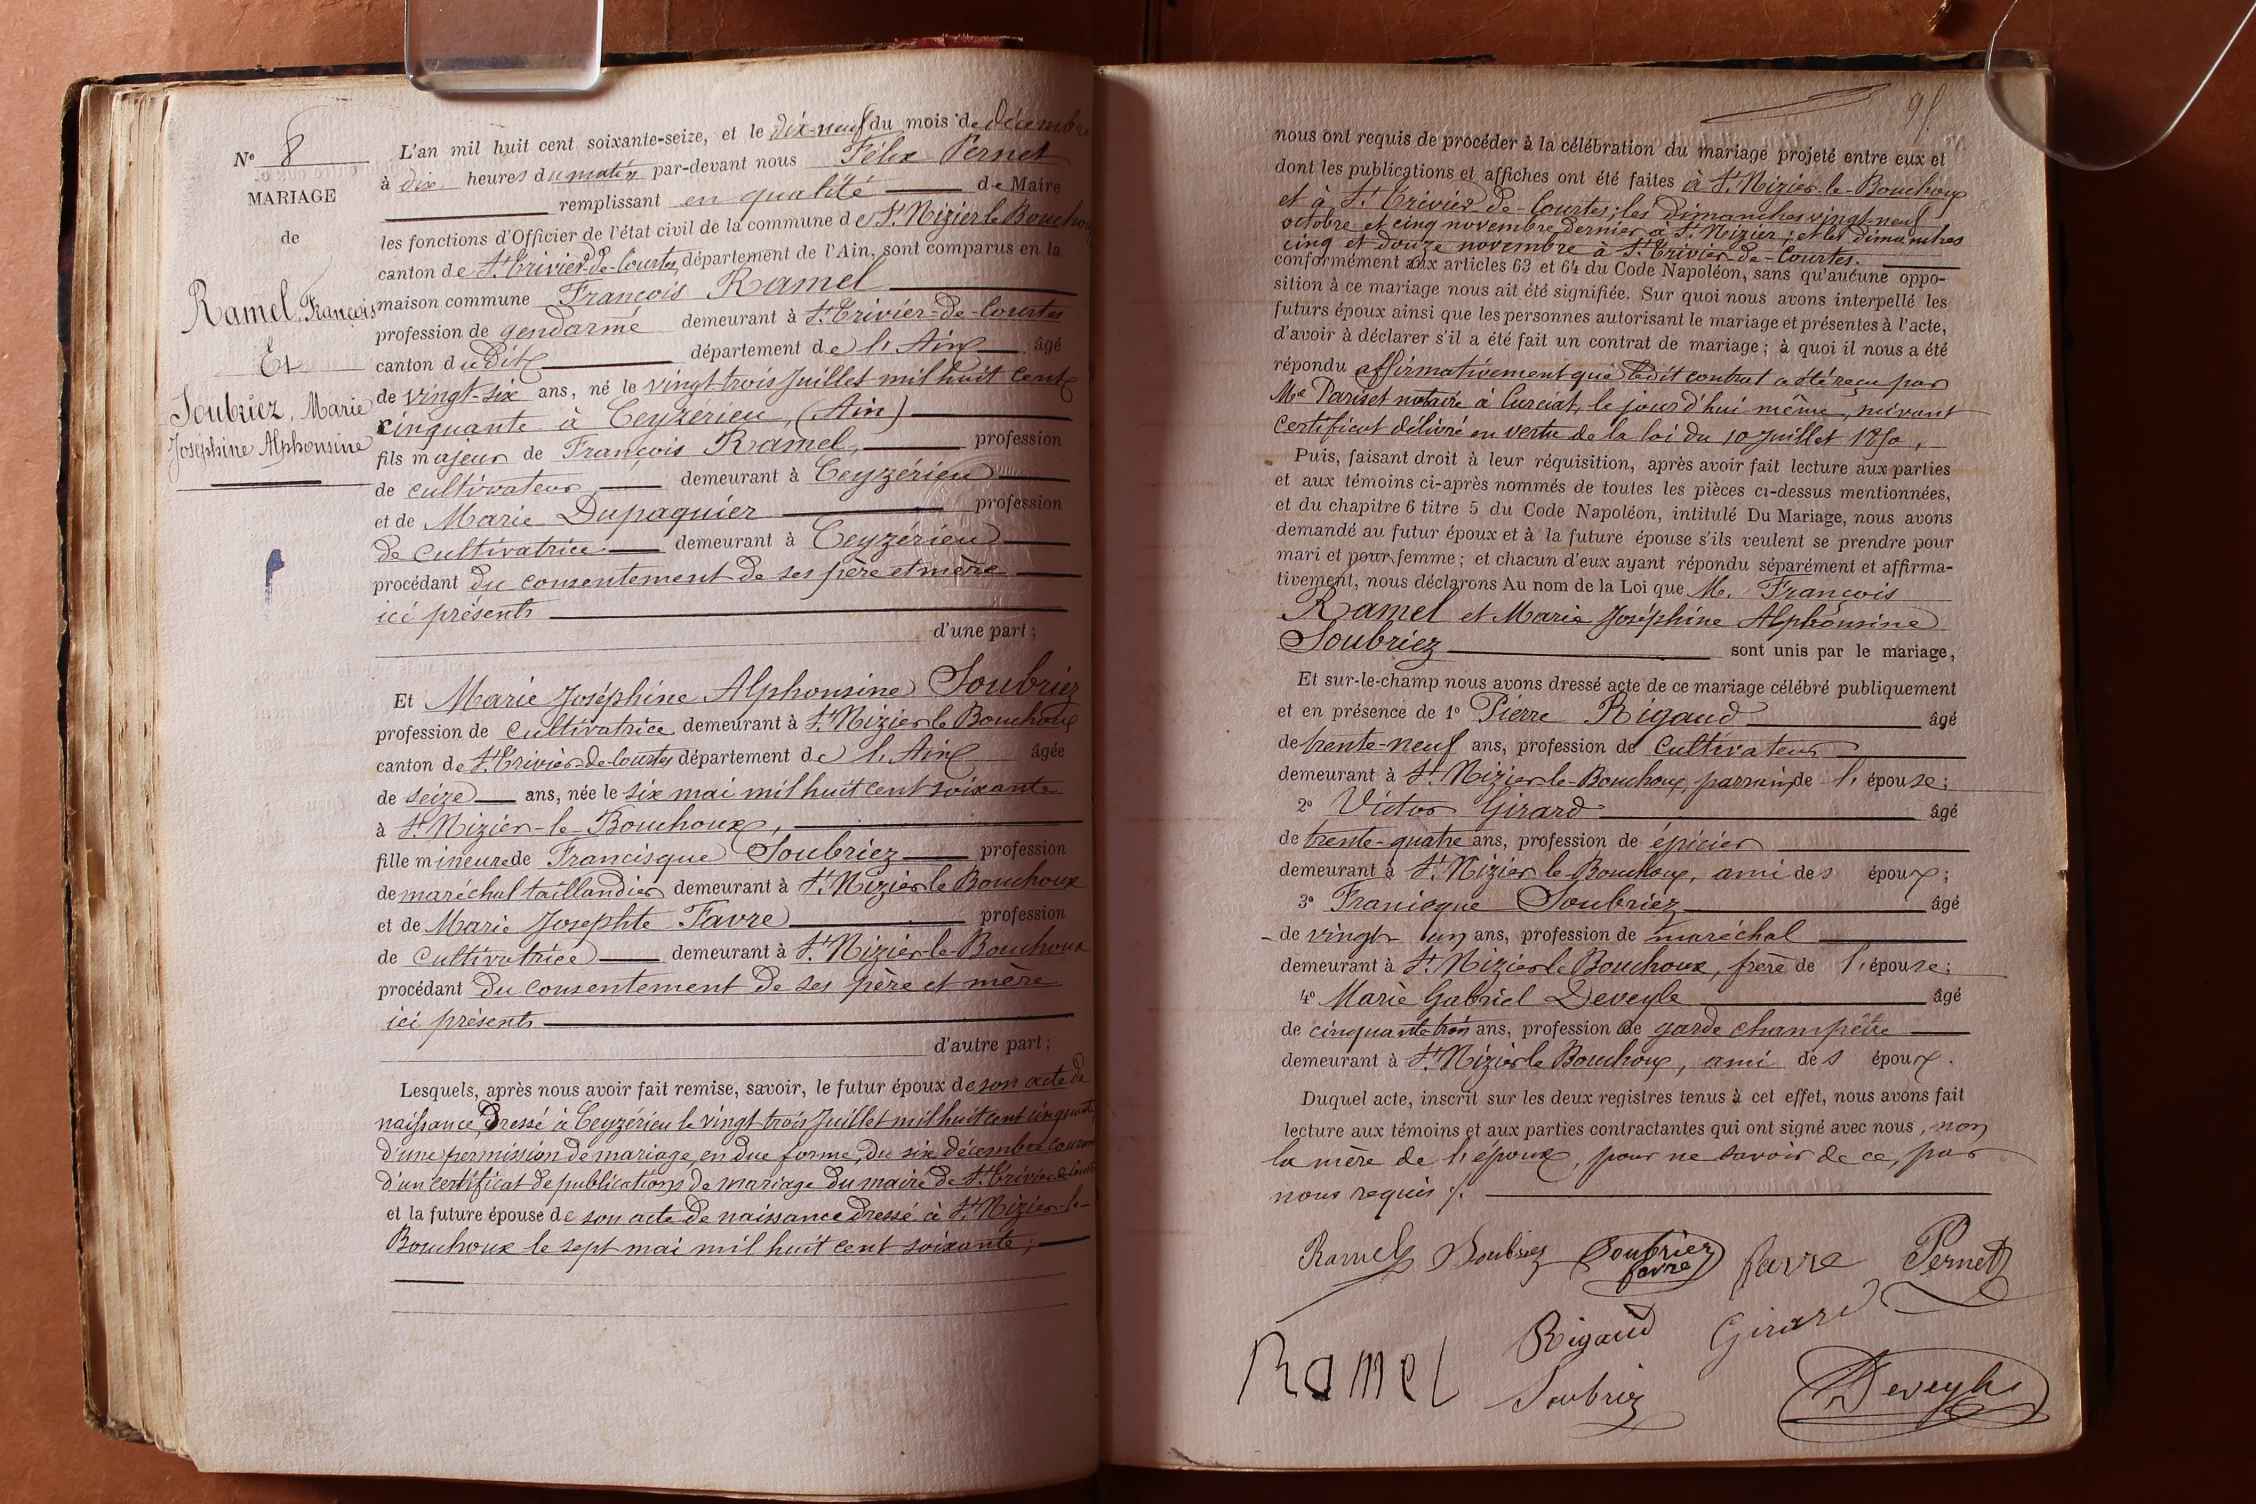 N° 8
MARIAGE
de
Ramel, François
Et
Soubriez, Marie
Joséphine Alphonsine
L'an mil huit cent soixante-seize, et le dix-neuf du mois de décembre
à dix heures du matin par-devant nous Félix Pernet
remplissant en qualité de Maire
les fonctions d'Officier de l'état civil de la commune de St Nizier le Bouchoux
canton de St Trivier-de-Courtes, département de l'Ain, sont comparus en la
maison commune François Ramel
profession de gendarme demeurant à St Trivier-de-Courtes
canton du dit département de l'Ain âgé
de vingt-six ans, né le vingt trois Juillet mil huit cent
cinquante à Ceyzérieu, (Ain)
fils majeur de François Ramel, profession
de cultivateur demeurant à Ceyzérieu
et de Marie Dupaquier profession
de cultivatrice demeurant à Ceyzérieu
procédant du consentement de ses père et mère
ici présents
d'une part;
Et Marie Joséphine Alphonsine Soubriez
profession de cultivatrice demeurant à St Nizier le Bouchoux
canton de St Trivier-de-Courtes département de l'Ain âgée
de seize ans, née le six mai mil huit cent soixante
à St Nizier-le-Bouchoux,
fille mineure de Francisque Soubriez profession
de maréchal taillandier demeurant à St Nizier le Bouchoux
et de Marie Josephte Favre profession
de cultivatrice demeurant à St Nizier-le-Bouchoux
procédant du consentement de ses père et mère
ici présents
d'autre part;
Lesquels, après nous avoir fait remise, savoir, le futur époux de son acte de
naissance, dressé à Ceyzérieu le vingt-trois Juillet mil huit cent cinquante,
d'une permission de mariage en due forme, du six décembre courant
d'un certificat de publications de mariage du maire de St Trivier-de-Courtes
et la future épouse de son acte de naissance dressé à St Nizier-le-
Bouchoux le sept mai mil huit cent soixante;
95
nous ont requis de procéder à la célébration du mariage projeté entre eux et
dont les publications et affiches ont été faites à St Nizier-le-Bouchoux
et à St Trivier-de-Courtes; les dimanches vingt-neuf
octobre et cinq novembre dernier à St Nizier; et les dimanches
cinq et douze novembre à St Trivier-de-Courtes.
conformément aux articles 63 et 64 du Code Napoléon, sans qu'aucune oppo-
sition à ce mariage nous ait été signifiée. Sur quoi nous avons interpellé les
futurs époux ainsi que les personnes autorisant le mariage et présentes à l'acte,
d'avoir à déclarer s'il a été fait un contrat de mariage; à quoi il nous a été
répondu affirmativement que ledit contrat a été reçu par
Me Pariset notaire à Curciat, le jour d'hui même, suivant
certificat délivré en vertu de la loi du 10 Juillet 1850,
Puis, faisant droit à leur réquisition, après avoir fait lecture aux parties
et aux témoins ci-après nommés de toutes les pièces ci-dessus mentionnées,
et du chapitre 6 titre 5 du Code Napoléon, intitulé Du Mariage, nous avons
demandé au futur époux et à la future épouse s'ils veulent se prendre pour
mari et pour femme; et chacun d'eux ayant répondu séparément et affirma-
tivement, nous déclarons Au nom de la Loi que M. François
Ramel et Marie Joséphine Alphonsine
Soubriez sont unis par le mariage,
Et sur-le-champ nous avons dressé acte de ce mariage célébré publiquement
et en présence de 1° Pierre Rigaud âgé
de trente-neuf ans, profession de cultivateur
demeurant à St Nizier-le-Bouchoux, parrain de l'épouse;
2° Victor Girard âgé
de trente-quatre ans, profession de épicier
demeurant à St Nizier le Bouchoux, ami des époux;
3° Francisque Soubriez âgé
de vingt un ans, profession de maréchal
demeurant à St Nizier le Bouchoux, frère de l'épouse;
4° Marie Gabriel Deveyle âgé
de cinquante trois ans, profession de garde champêtre
demeurant à St Nizier le Bouchoux, ami des époux.
Duquel acte, inscrit sur les deux registres tenus à cet effet, nous avons fait
lecture aux témoins et aux parties contractantes qui ont signé avec nous, non
la mère de l'époux, pour ne savoir de ce, par
nous requis ./.
Ramel Soubriez Soubriez favre favre Pernet
Ramel Rigaud Girard
Soubriez Deveyle